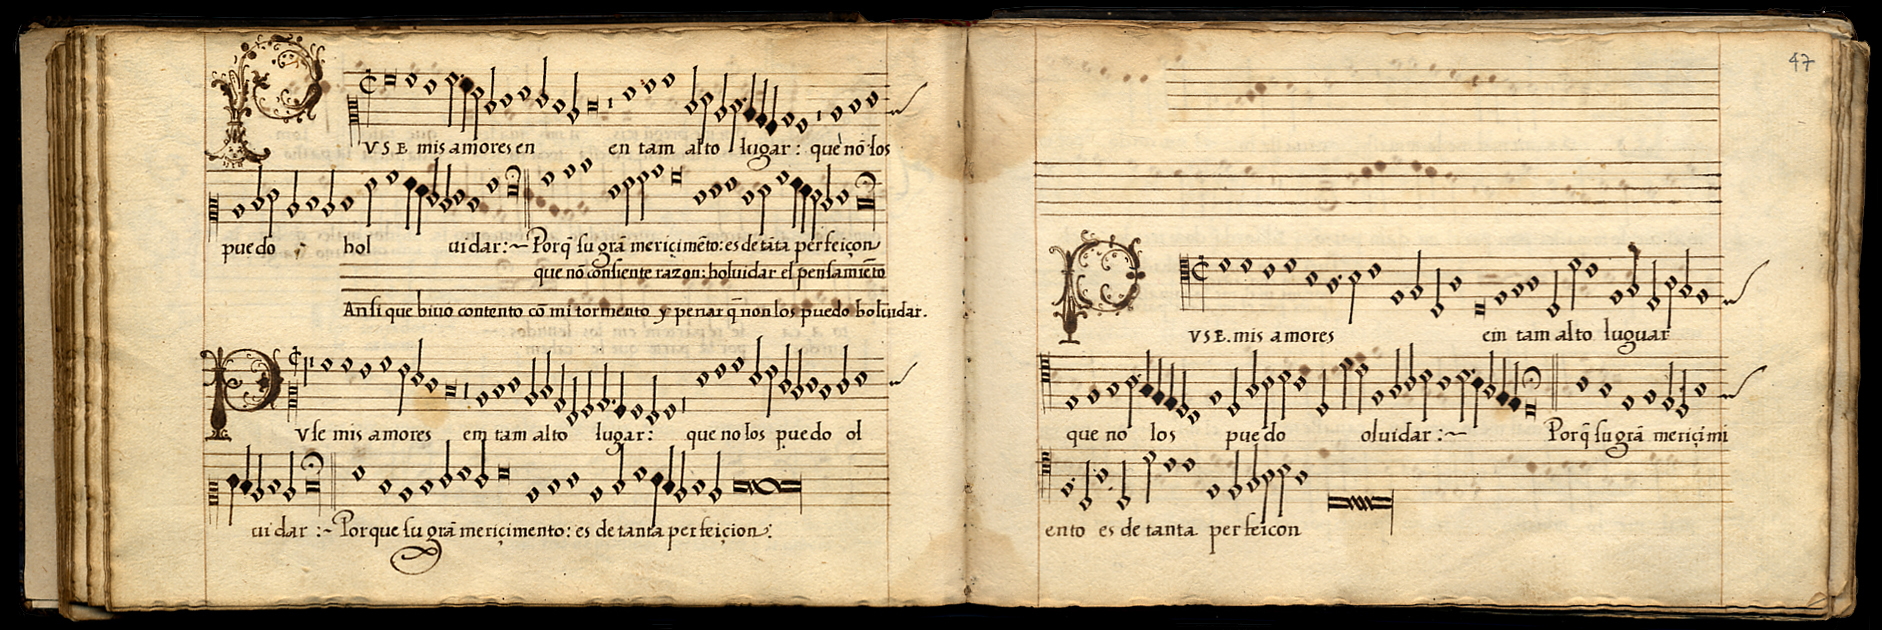 PVSE. mis amores en en tam alto lugar: que nō los
puedo hol uidar:~ Porq̄ su grā meriçimēto: es de tāta perfeiçon
que nō consiente razon: holuidar el pensamiēto
Ansi que biuo contento cō mi tormento y penar q̄ non los puedo holuidar.
PVse mis amores em tam alto lugar: que no los puedo ol
uidar:~ Porque su grā meriçimento: es de tanta perfeiçion:
47
PVSE. mis amores em tam alto luguar
que no los puedo oluidar:~ Porq̄ su grā meriçimi
ento es de tanta perfeicon